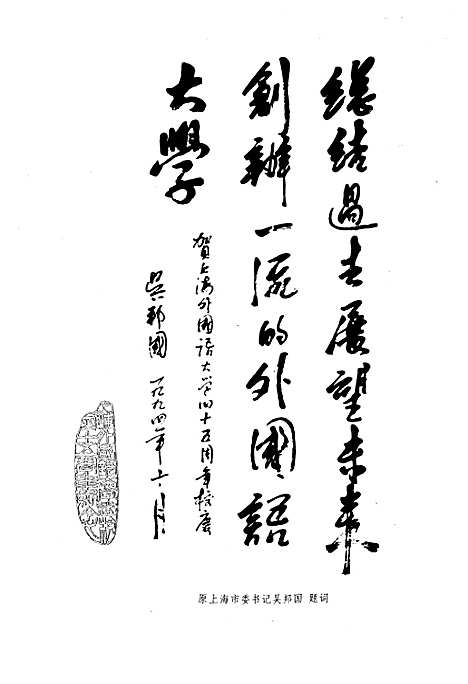 總結過去展望未来
創辦一流的外國語
大學
賀上海外國语大学四十五周年校慶
吴邦國 一九九四年十二月
原上海市委书记吴邦国 题词